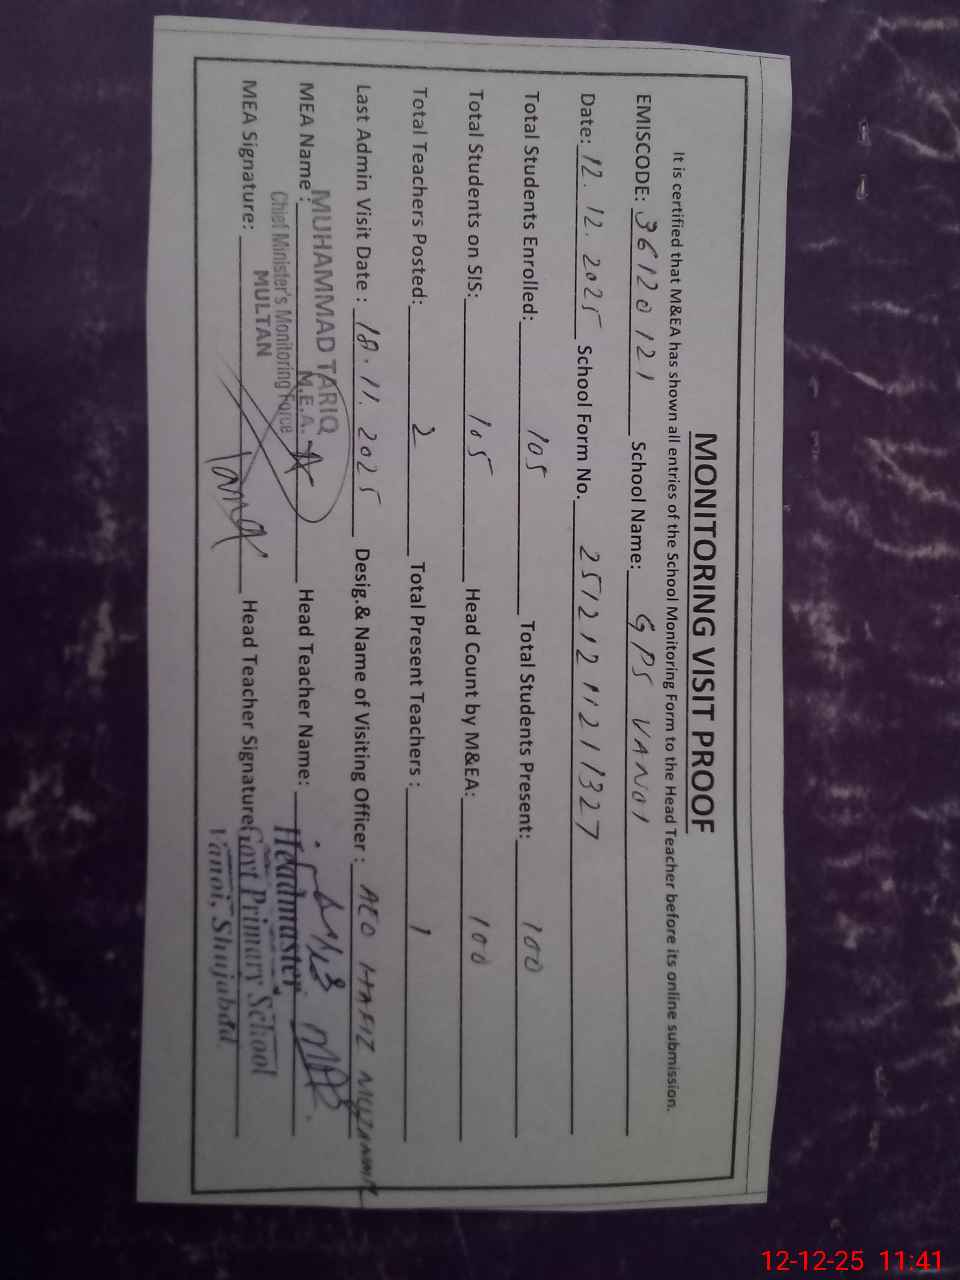 MONITORING VISIT PROOF
It is certified that M&EA has shown all entries of the School Monitoring Form to the Head Teacher before its online submission.
EMISCODE: 36120121 School Name: GPS VANOI
Date: 12.12.2025 School Form No. 25121211211327
Total Students Enrolled: 105 Total Students Present: 100
Total Students on SIS: 105 Head Count by M&EA: 100
Total Teachers Posted: 2 Total Present Teachers : 1
Last Admin Visit Date : 18.11.2025 Desig.& Name of Visiting Officer : AEO HAFIZ MUZAMMIL
MEA Name: MUHAMMAD TARIQ Head Teacher Name:
M.E.A.
Chief Minister's Monitoring Force
MULTAN
Headmaster
MEA Signature: Head Teacher Signature: Govt Primary School
Vanoi, Shujabad
12-12-25 11:41